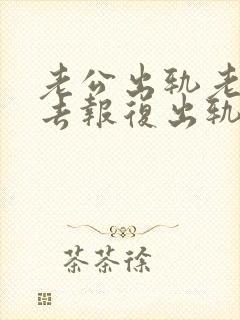 老公出轨老
去報復出轨
茶茶徐